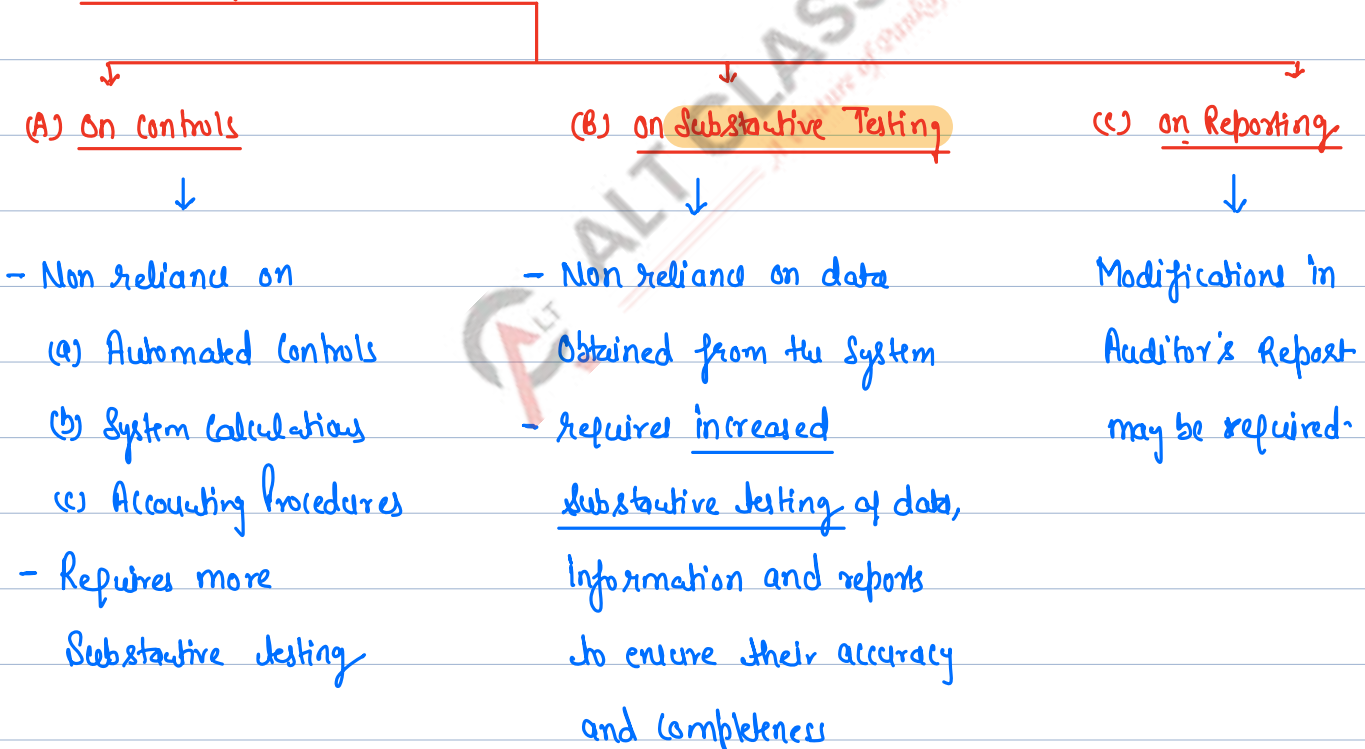 (A) On Controls
- Non reliance on
(a) Automated Controls
(b) System Calculations
(c) Accounting Procedures
- Requires more
Substantive testing
(B) on Substantive Testing
- Non reliance on data
Obtained from the System
- requires increased
Substantive testing of data,
Information and reports
to ensure their accuracy
and completeness
(C) on Reporting
Modifications in
Auditor's Report
may be required.
ALT CLASS
ALT